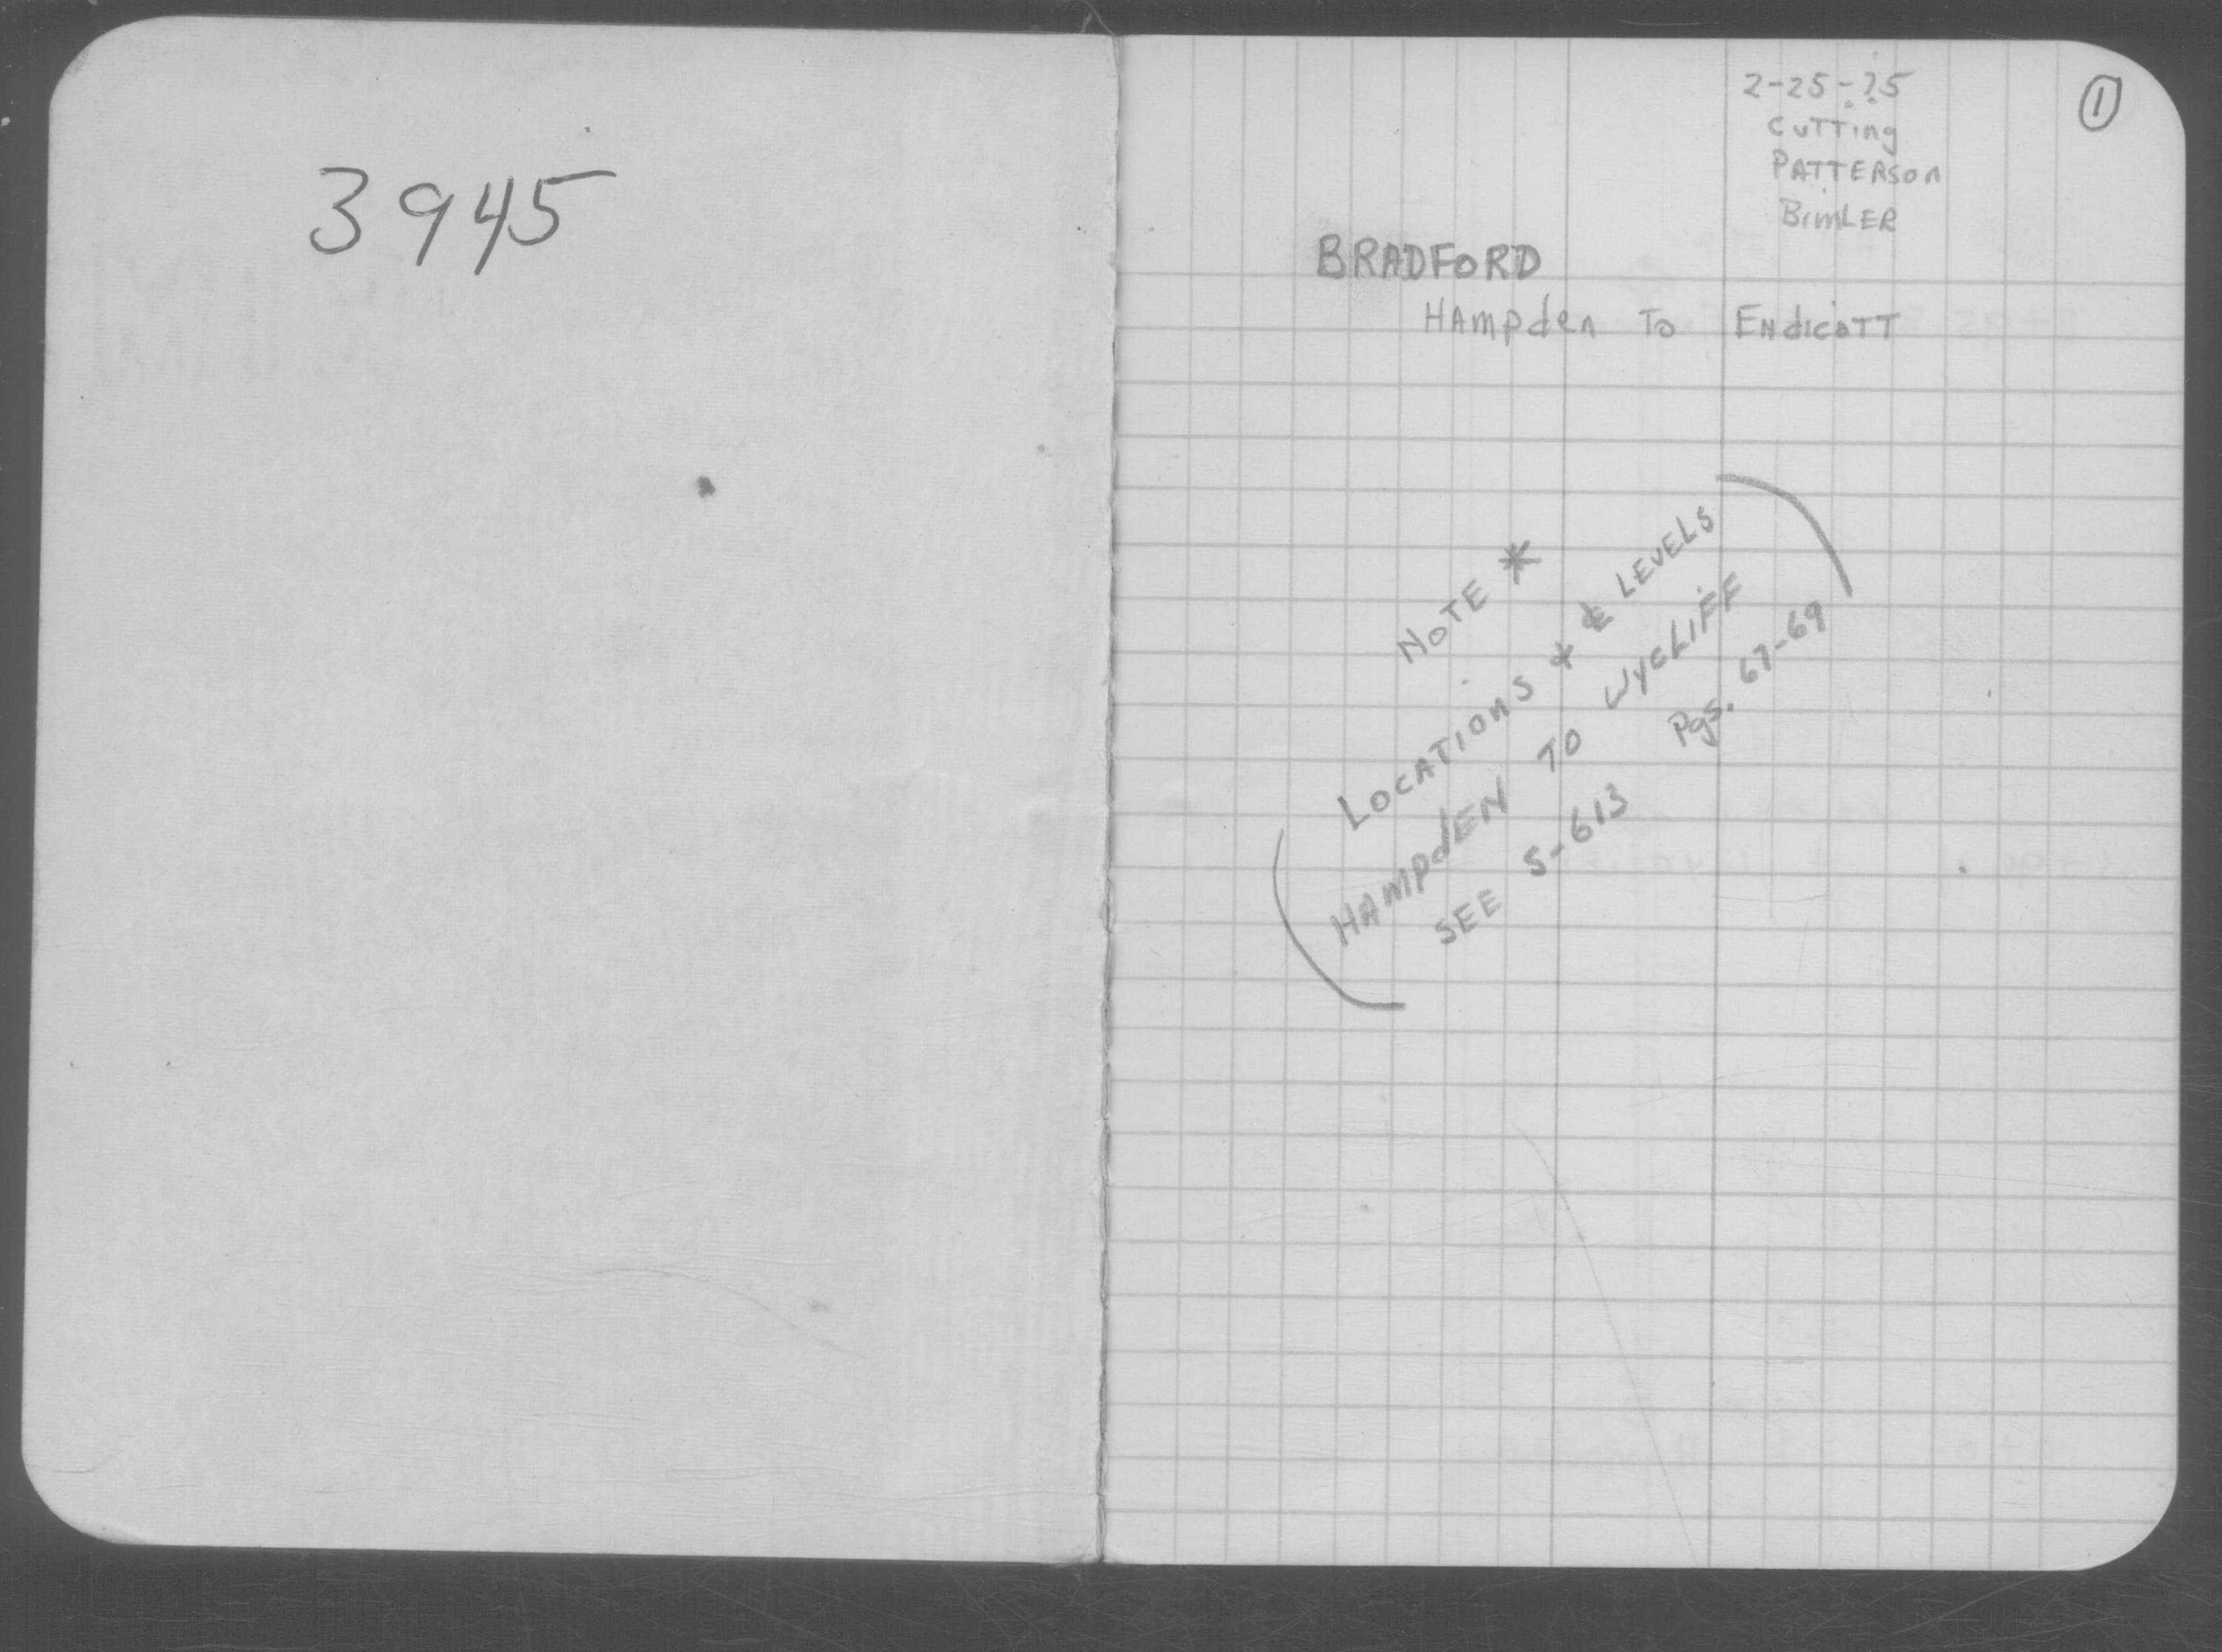 3945
1
2-25-75
Cutting
PATTERSON
BimLER
BRADFORD
HAmpden To EndicoTT
NOTE *
LOCATIONS * & LEVELS
HAmpdEN TO WycLIFF
SEE S-613 Pgs. 67-69